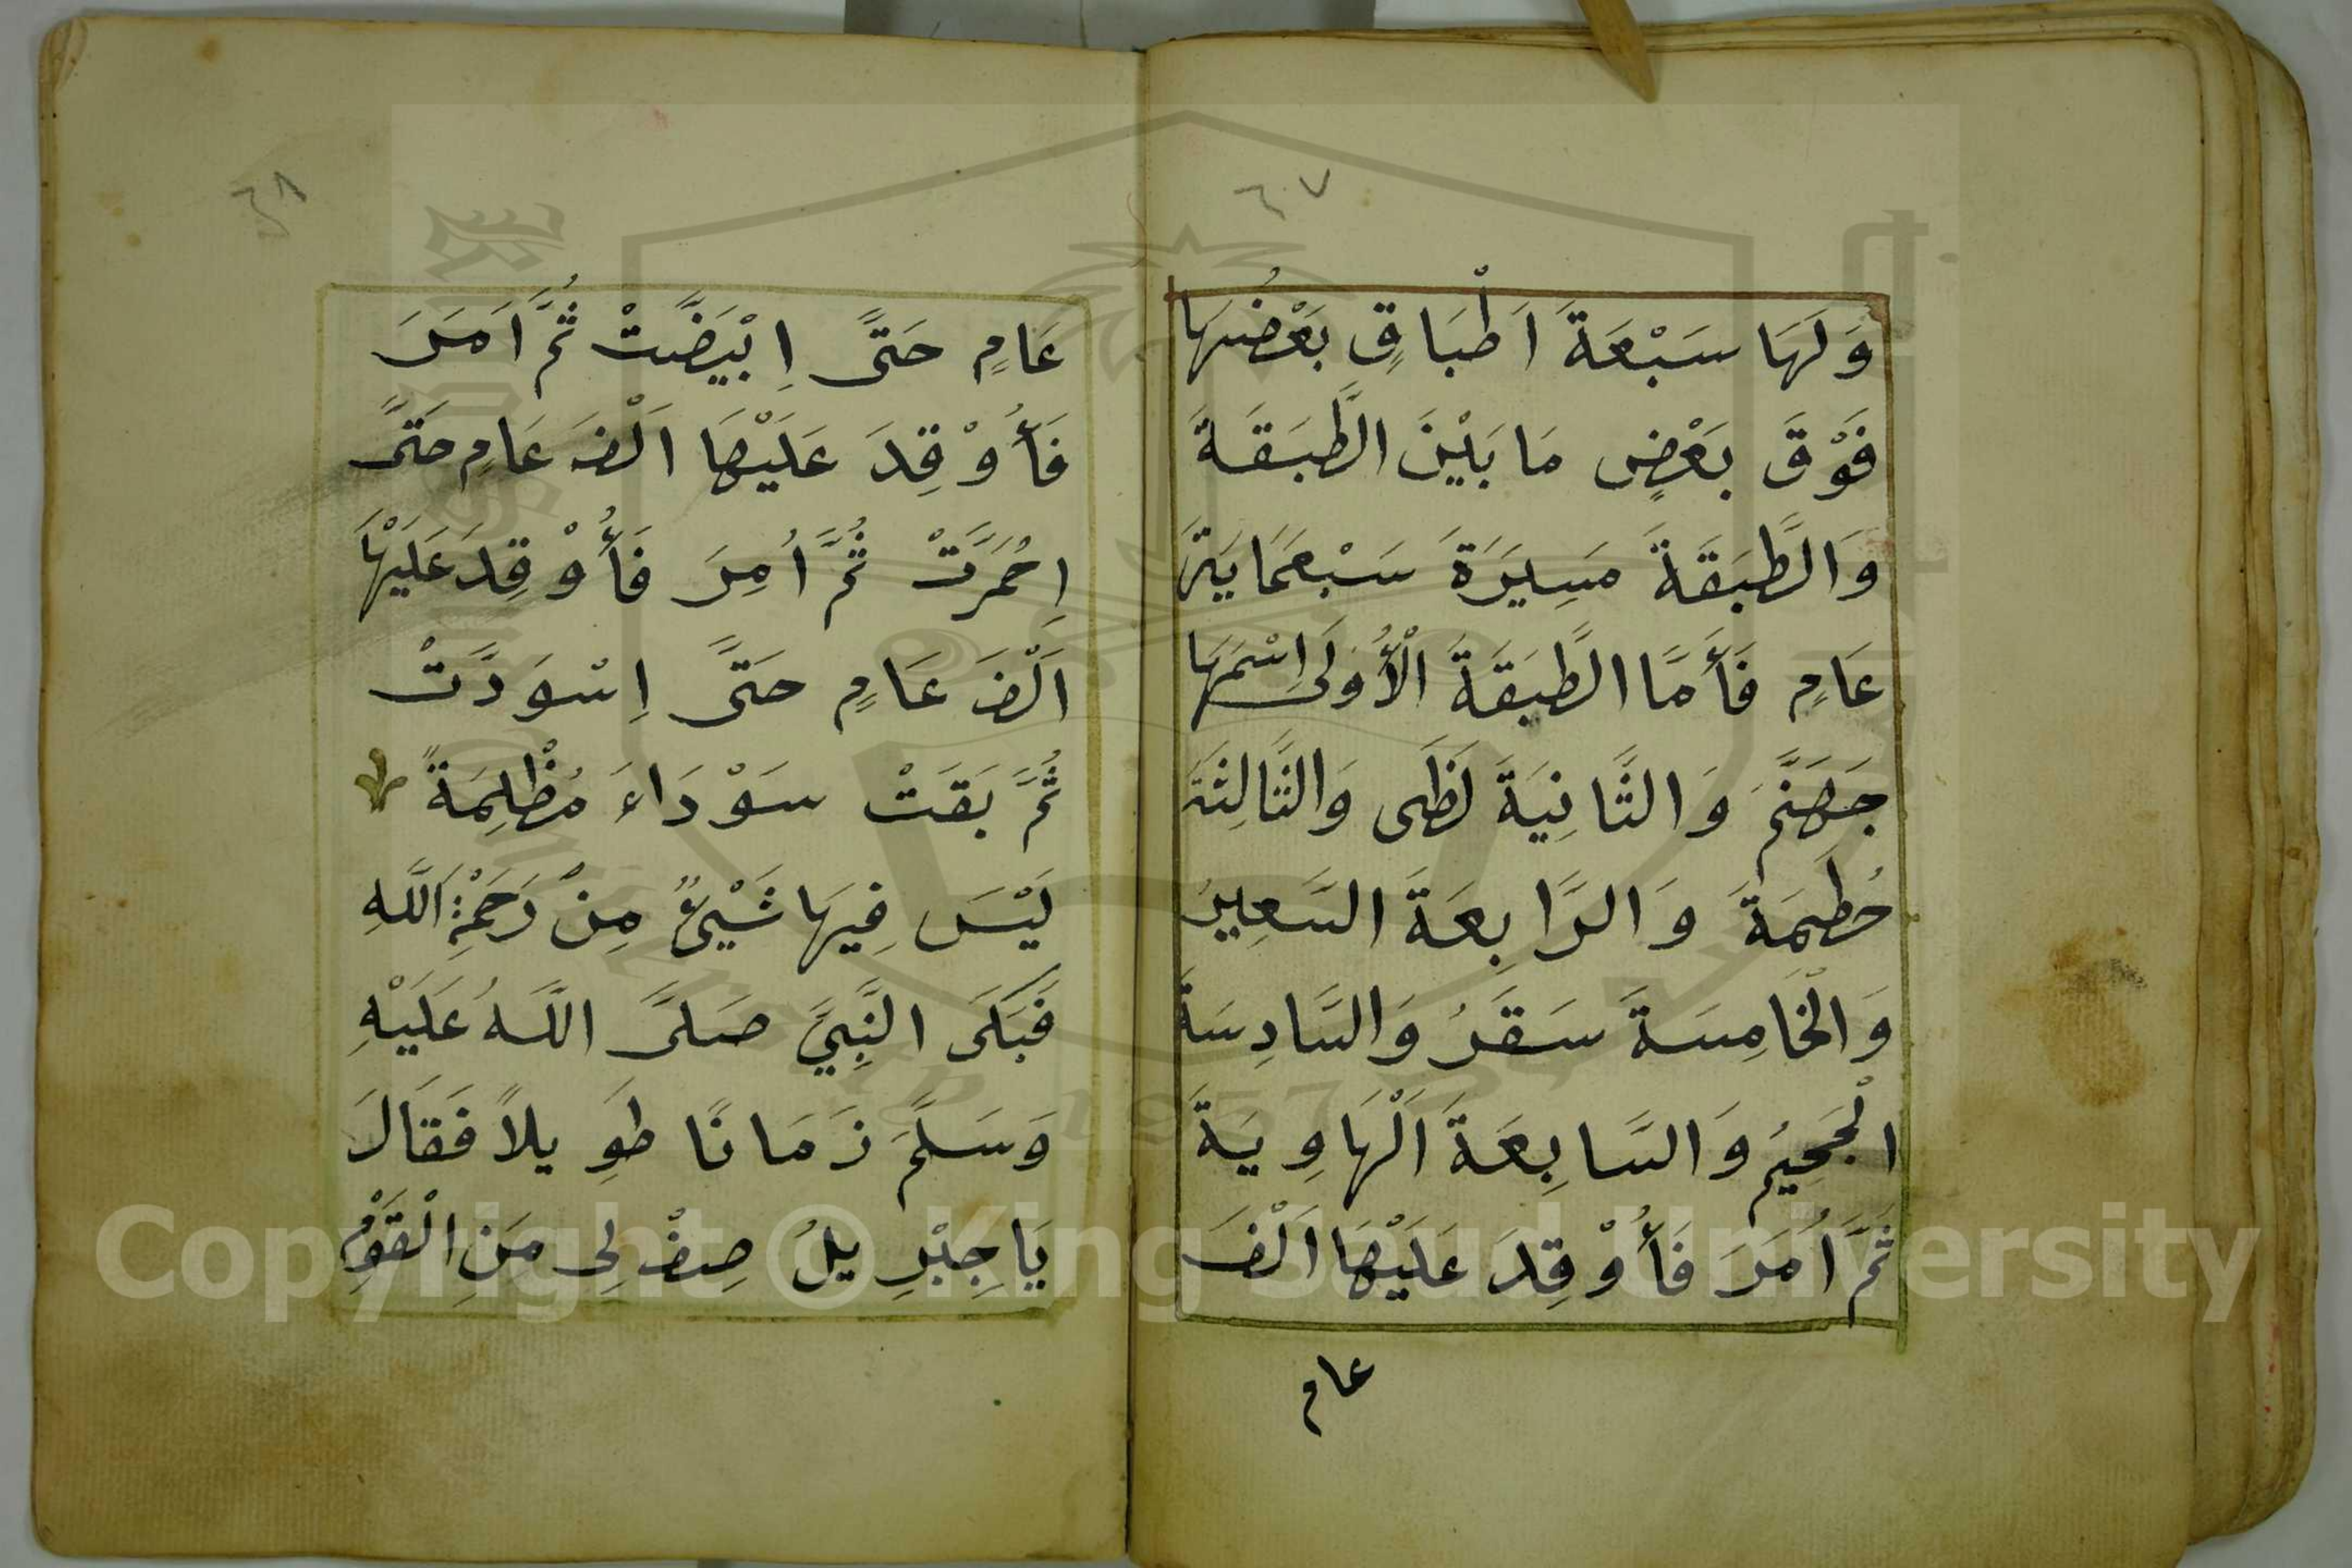 ٦٠٧
وَلَهَا سَبْعَةَ اَطْبَاقٍ بَعْضُهَا
فَوْقَ بَعْضٍ مَا بَيْنَ الطَّبَقَةَ
وَالطَّبَقَةَ مَسِيَرَةَ سَبْعَمَايَةَ
عَامٍ فَأَمَّا الطَّبَقَةَ الْأُوَلَى اِسْمَهَا
جَهَنَّمَ وَالثَّانِيَةَ لَظَى وَالثَّالِثَةَ
حُطَمِةَ وَالرَّابِعَةَ السَّعِيرُ
وَالْخَامِسَةَ سَقَرُ وَالسَّادِسَةَ
الْجَحِيُم وَالسَّابِعَةَ اَلْهَاوِيَةَ
ثَمَّ اُمَرَ فَأُوْقِدَ عَلَيْهَا اَلْفَ
عام
عَامٍ حَتَّى اِبْيَضَّتْ ثُمَّ اَمَرَ
فَأُوْقِدَ عَلَيْهَا اَلْفَ عَامٍ حَتَّى
اِحْمَرَّتْ ثُمَّ اُمِرَ فَأُوْقِدَ عَلَيْهَا
اَلْفَ عَامٍ حَتَّى اِسْوَدَّتْ
ثُمَّ بَقَتْ سَوْدَاءَ مُظْلِمَةً
لَيْسَ فِيهَا شَيْئٌ مِنْ رَحَمْةِ اَللَّهِ
فَبَكَى النَّبِيَّ صَلَّى اللَّهُ عَلَيْهِ
وَسَلَّمَ زَمَانًا طَوِيلاً فَقَالَ
يَا جِبْرِيلُ صِفْ لِى مَنِ الْقَوْمُ
Copyright © King Saud University
1957